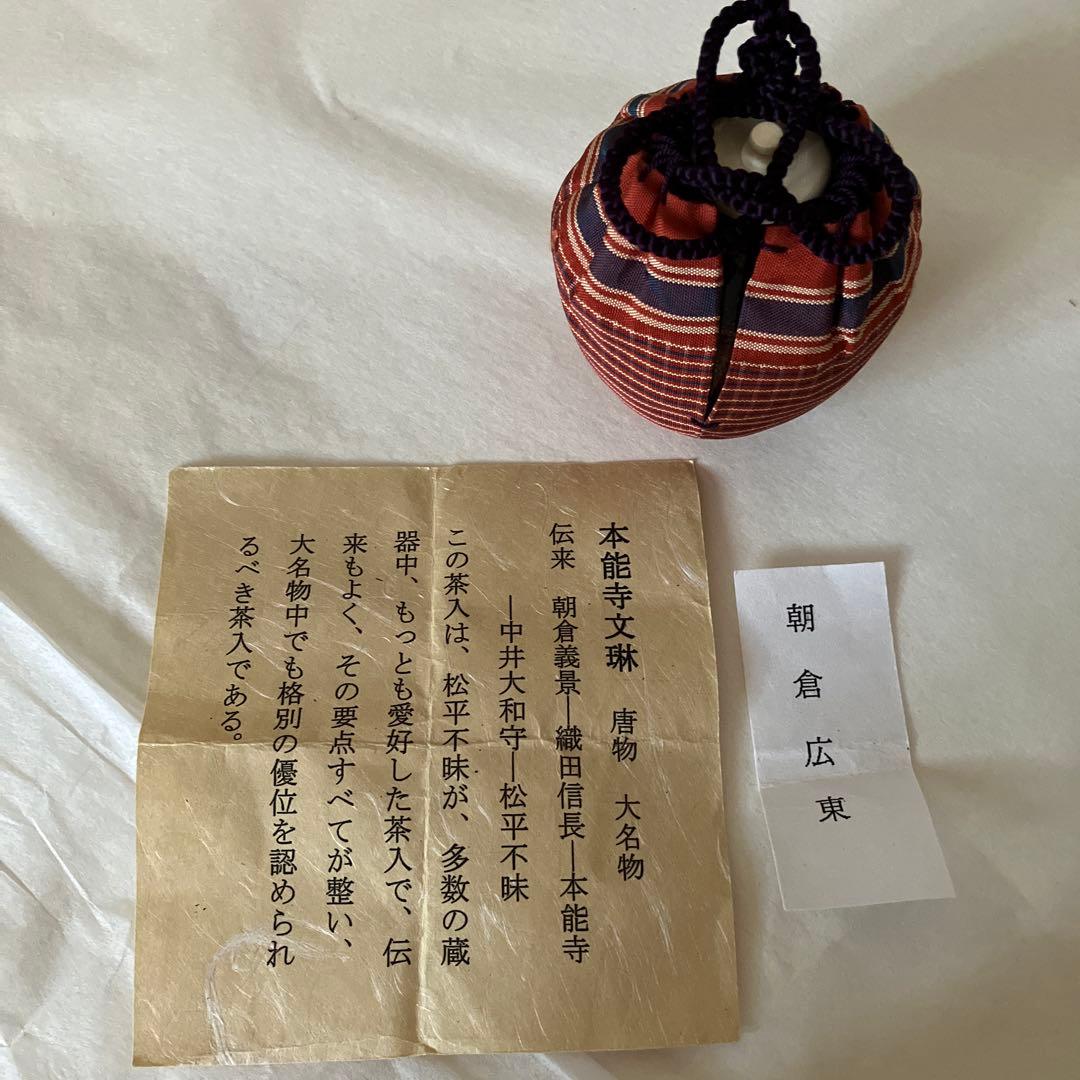 本能寺文琳 唐物 大名物
伝来 朝倉義景―織田信長―本能寺
―中井大和守―松平不昧
この茶入は、松平不昧が、多数の蔵
器中、もっとも愛好した茶入で、伝
来もよく、その要点すべてが整い、
大名物中でも格別の優位を認められ
るべき茶入である。
朝倉広東